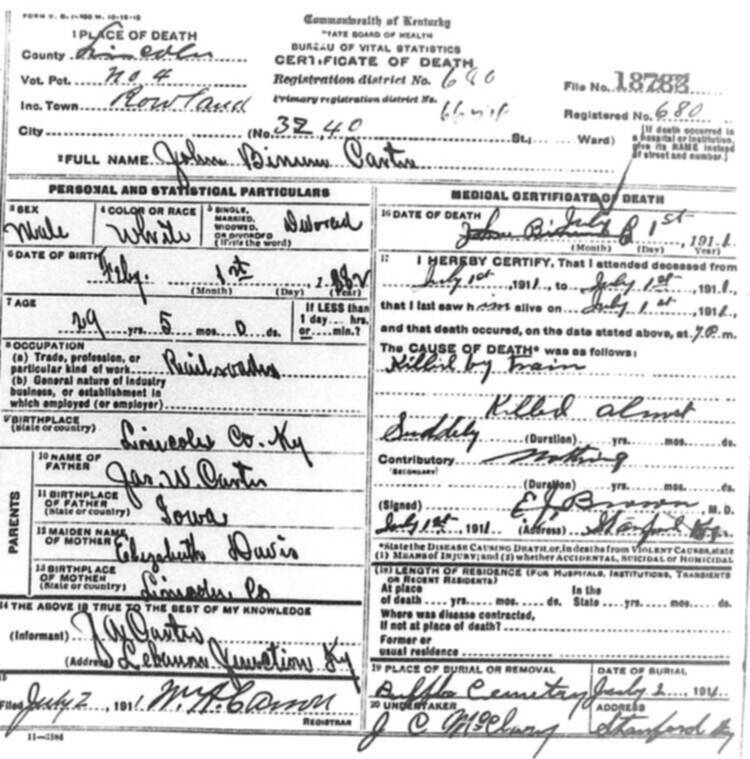 FORM V. S.
Commonwealth of Kentucky
STATE BOARD OF HEALTH
BUREAU OF VITAL STATISTICS
CERTIFICATE OF DEATH
1 PLACE OF DEATH
County Lincoln
Vot. Pct. No. 4
Inc. Town Rowland
City
(No. 32,40 St.; Ward)
Registration district No. 680
Primary registration district No.
File No. 18783
Registered No. 680
[If death occurred in
a hospital or institution,
give its NAME instead
of street and number.]
2 FULL NAME John Binum Carter
PERSONAL AND STATISTICAL PARTICULARS
3 SEX
Male
4 COLOR OR RACE
White
5 SINGLE,
MARRIED,
WIDOWED,
OR DIVORCED
(Write the word)
Divorced
6 DATE OF BIRTH
Feby. 1st, 1882
(Month) (Day) (Year)
7 AGE
29 yrs. 5 mos. 0 ds.
If LESS than
1 day .... hrs.
or .... min.?
8 OCCUPATION
(a) Trade, profession, or
particular kind of work Railroader
(b) General nature of industry
business, or establishment in
which employed (or employer)
9 BIRTHPLACE
(State or country)
Lincoln Co. Ky
PARENTS
10 NAME OF
FATHER
Jas. W. Carter
11 BIRTHPLACE
OF FATHER
(State or country)
Iowa
12 MAIDEN NAME
OF MOTHER
Elizabeth Davis
13 BIRTHPLACE
OF MOTHER
(State or country)
Lincoln Co
14 THE ABOVE IS TRUE TO THE BEST OF MY KNOWLEDGE
(Informant) J W Carter
(Address) Lebanon Junction Ky
15
Filed July 2, 1911. W. A. Carson
REGISTRAR
11-3184
MEDICAL CERTIFICATE OF DEATH
16 DATE OF DEATH
July 1st, 1911
(Month) (Day) (Year)
17 I HEREBY CERTIFY, That I attended deceased from
July 1st, 1911, to July 1st, 1911,
that I last saw him alive on July 1st, 1911,
and that death occured, on the date stated above, at 7 P. m.
The CAUSE OF DEATH* was as follows:
Killed by train
Killed almost
Suddely (Duration) yrs. mos. ds.
Contributory Nothing
(SECONDARY)
(Duration) yrs. mos. ds.
(Signed) E J Brown, M. D.
July 1st, 1911 (Address) Stanford Ky.
*State the DISEASE CAUSING DEATH, or, in deaths from VIOLENT CAUSES, state
(1) MEANS OF INJURY; and (2) whether ACCIDENTAL, SUICIDAL or HOMICIDAL
(18) LENGTH OF RESIDENCE (FOR HOSPITALS, INSTITUTIONS, TRANSIENTS
OR RECENT RESIDENTS)
At place
of death .... yrs. .... mos. .... ds.
In the
State .... yrs. .... mos. .... ds.
Where was disease contracted,
If not at place of death?
Former or
usual residence
19 PLACE OF BURIAL OR REMOVAL
Buffalo Cemetery
DATE OF BURIAL
July 2, 1911
20 UNDERTAKER
J C McClary
ADDRESS
Stanford Ky